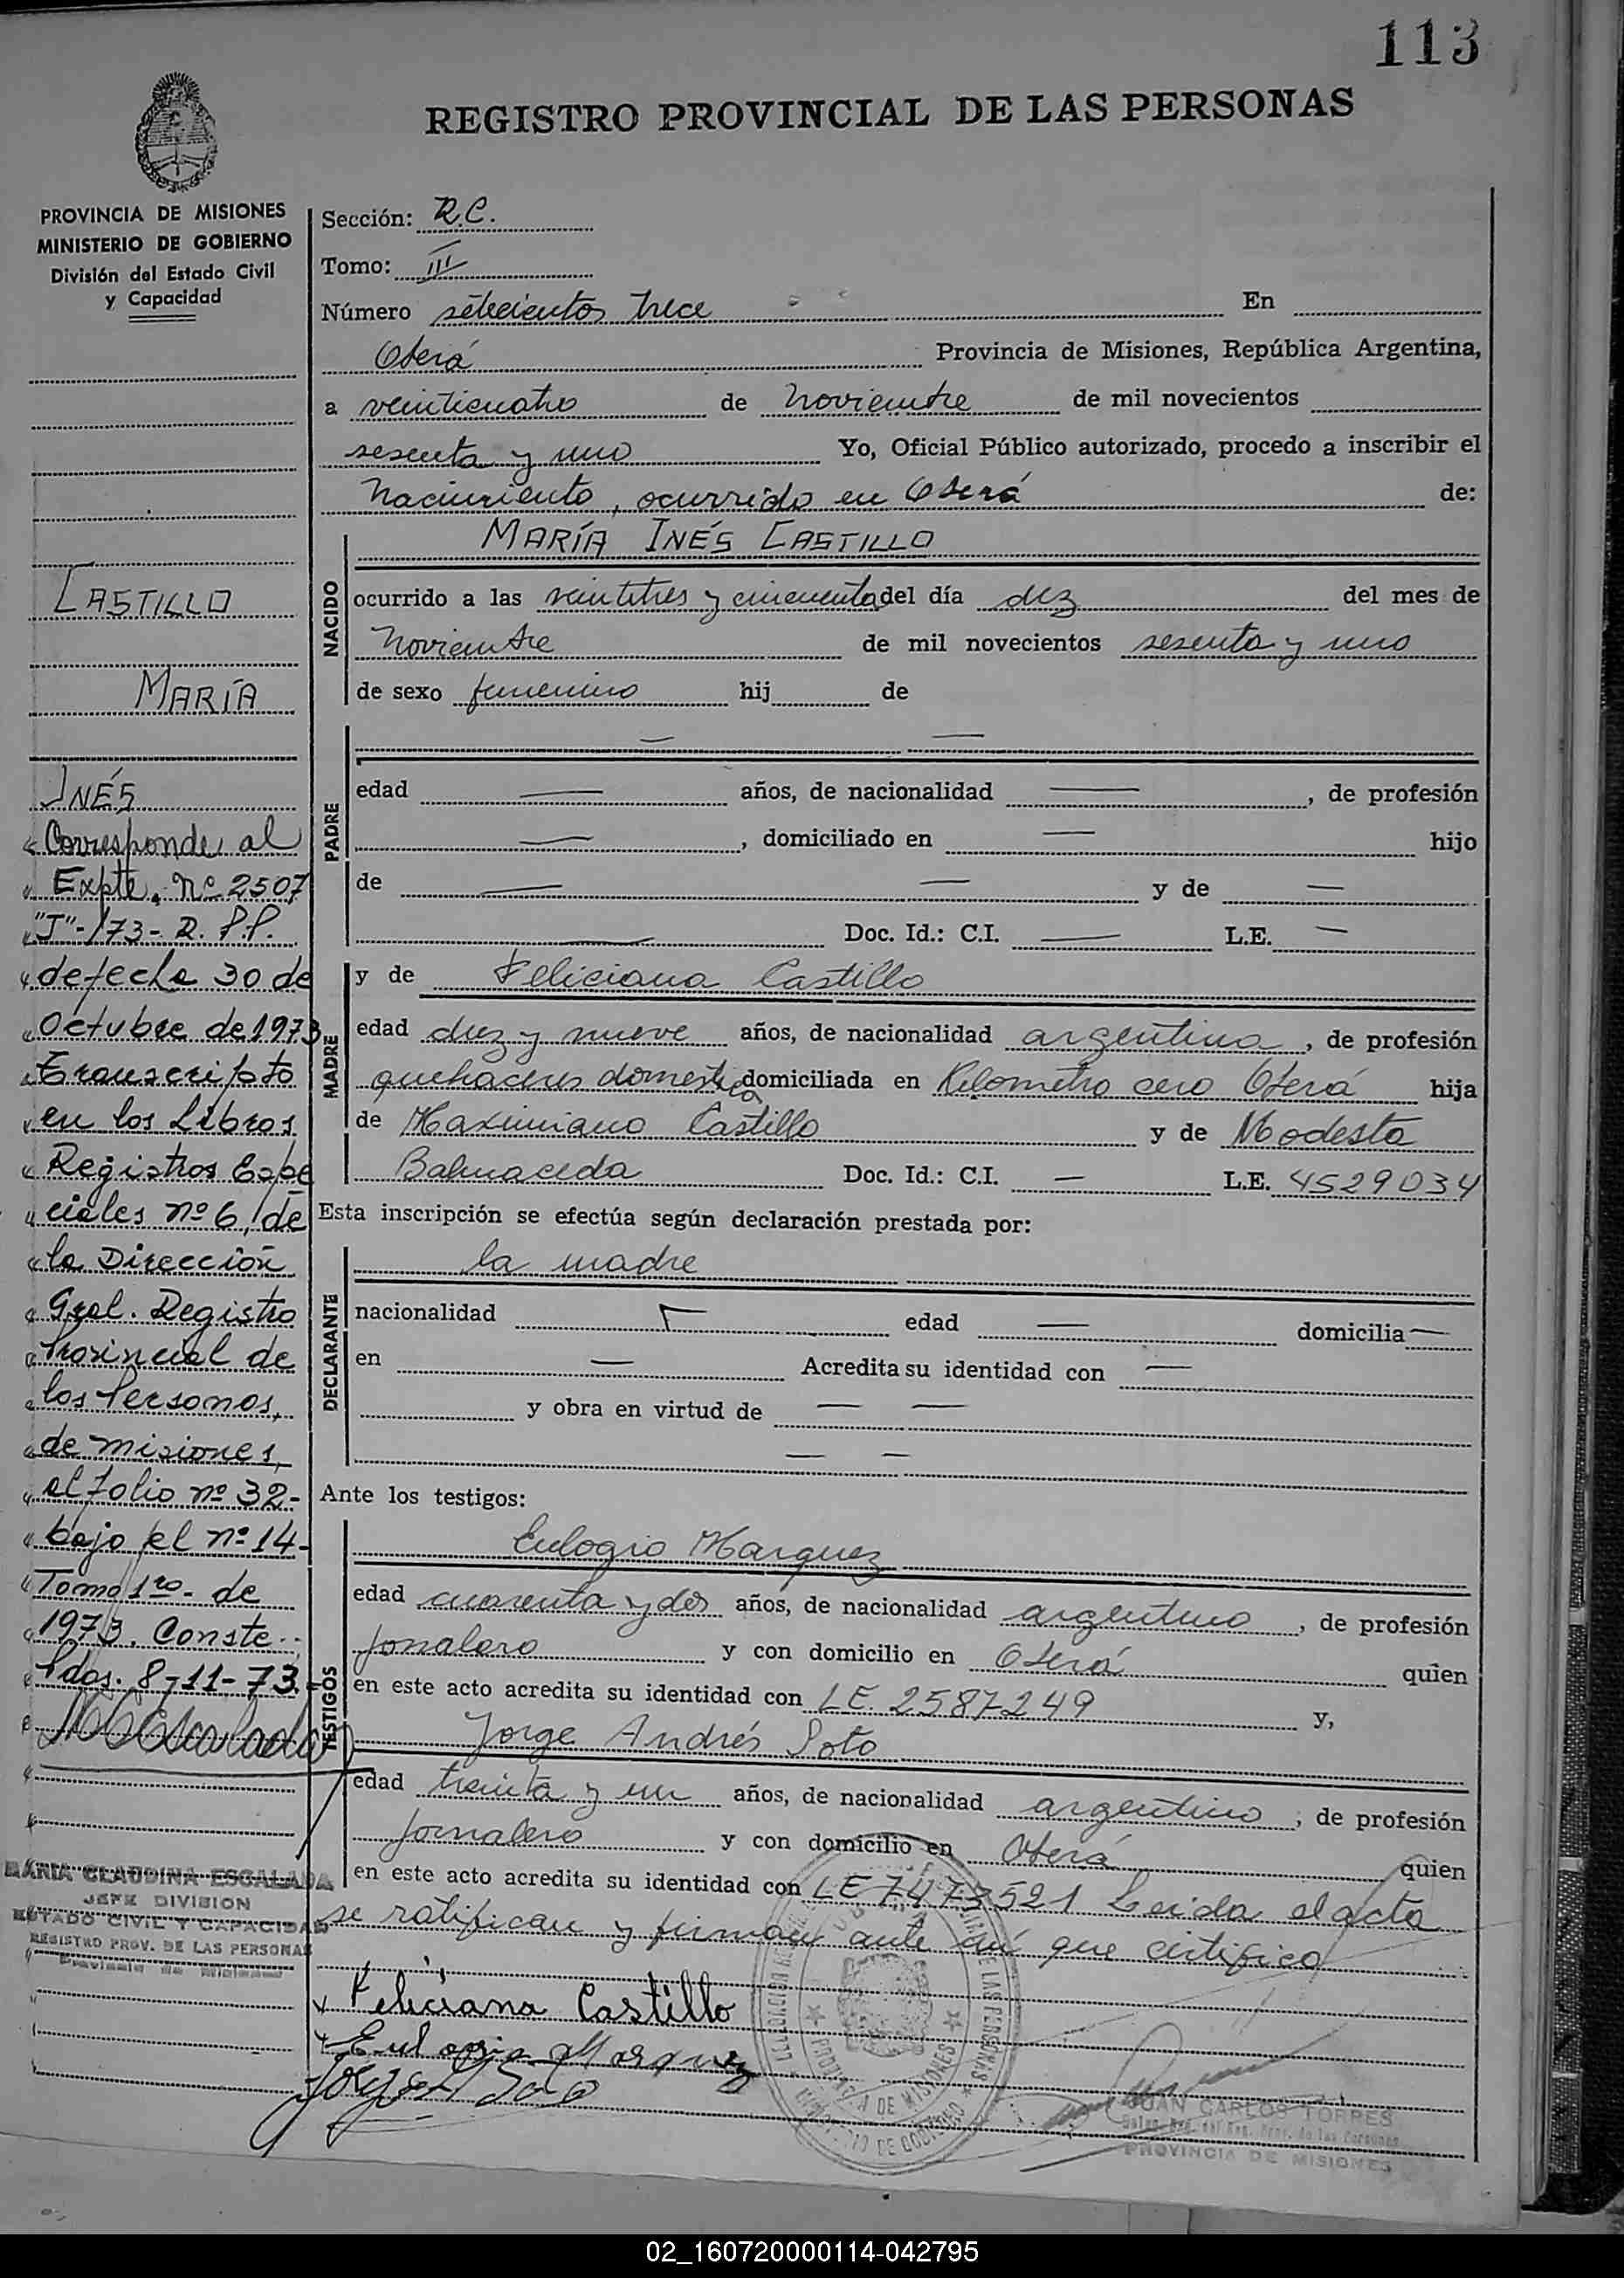 113
REGISTRO PROVINCIAL DE LAS PERSONAS
PROVINCIA DE MISIONES
MINISTERIO DE GOBIERNO
División del Estado Civil
y Capacidad
Sección: R.C.
Tomo: III
Número setecientos trece En
Oberá Provincia de Misiones, República Argentina,
a veinticuatro de noviembre de mil novecientos
sesenta y uno Yo, Oficial Público autorizado, procedo a inscribir el
nacimiento, ocurrido en Oberá de:
MARÍA INÉS CASTILLO
NACIDO
ocurrido a las veintitres y cincuenta del día diez del mes de
noviembre de mil novecientos sesenta y uno
de sexo femenino hij de
— —
PADRE
edad — años, de nacionalidad —, de profesión
—, domiciliado en — hijo
de — — y de —
— Doc. Id.: C.I. — L.E. —
MADRE
y de Feliciana Castillo
edad diez y nueve años, de nacionalidad argentina, de profesión
quehaceres domestica domiciliada en Kilometro cero Oberá hija
de Maximiano Castillo y de Modesta
Balmaceda Doc. Id.: C.I. — L.E. 4529034
Esta inscripción se efectúa según declaración prestada por:
la madre
DECLARANTE
nacionalidad — edad — domicilia —
en — Acredita su identidad con —
y obra en virtud de — —
— —
Ante los testigos:
TESTIGOS
Eulogio Marquez
edad cuarenta y dos años, de nacionalidad argentino, de profesión
jornalero y con domicilio en Oberá quien
en este acto acredita su identidad con LE 2587249 y,
Jorge Andrés Soto
edad treinta y un años, de nacionalidad argentino, de profesión
jornalero y con domicilio en Oberá quien
en este acto acredita su identidad con LE 7473521 Leida el acta
se ratifican y firman ante mí que certifico
Feliciana Castillo
Eulogio Marquez
Jorge A Soto
JUAN CARLOS TORRES
PROVINCIA DE MISIONES
PROVINCIA DE MISIONES
MINISTERIO DE GOBIERNO
DE LAS PERSONAS
CASTILLO
MARÍA
INÉS
Corresponde al
Expte. nº 2507
"J"-/73- R. P.P.
de fecha 30 de
Octubre de 1973
Transcripto
en los Libros
Registros Espe
ciales nº 6, de
la Dirección
Gral. Registro
Provincial de
las Personas,
de Misiones,
al folio nº 32-
bajo el nº 14-
Tomo 1ro- de
1973. Conste.-
Pdas. 8-11-73.-
MARIA CLAUDINA ESCALADA
JEFE DIVISION
ESTADO CIVIL Y CAPACIDAD
REGISTRO PROV. DE LAS PERSONAS
Provincia de Misiones
02_160720000114-042795